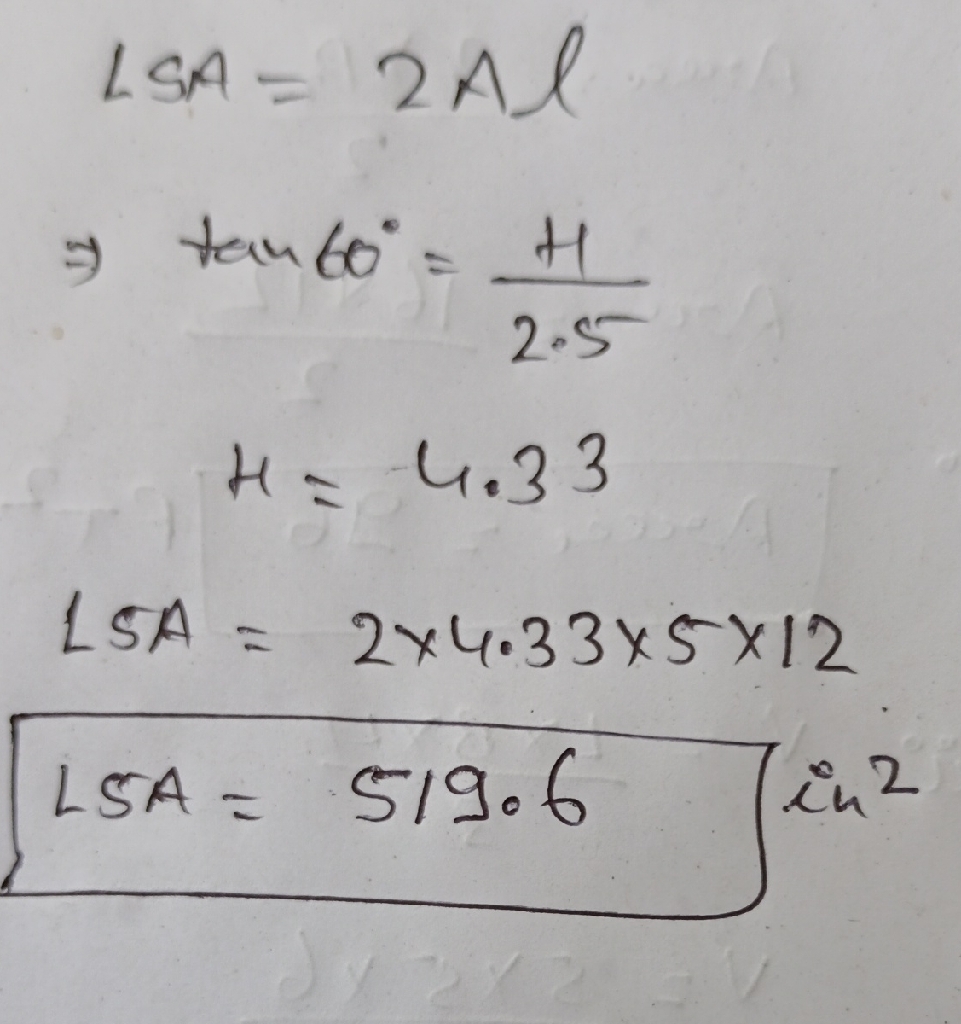 LSA = 2Al
⇒ tan 60° = H / 2.5
H = 4.33
LSA = 2×4.33×5×12
LSA = 519.6 in²